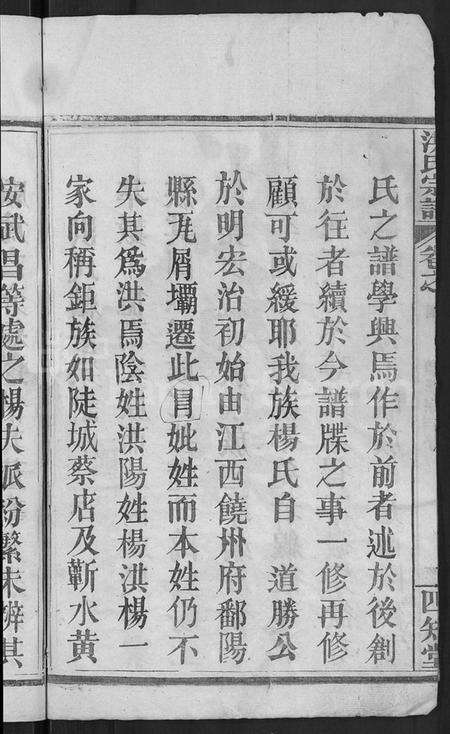 氏之譜學興焉作於前者述於後創
於往者續於今譜牒之事一修再修
顧可或緩耶我族楊氏自 道勝公
於明宏治初始由江西饒州府鄱陽
縣瓦屑壩遷此冐妣姓而本姓仍不
失其爲洪焉陰姓洪陽姓楊洪楊一
家向稱鉅族如陡城蔡店及蘄水黃
安武昌等處之楊夫派份繁未辨其
氏宗譜
四知堂